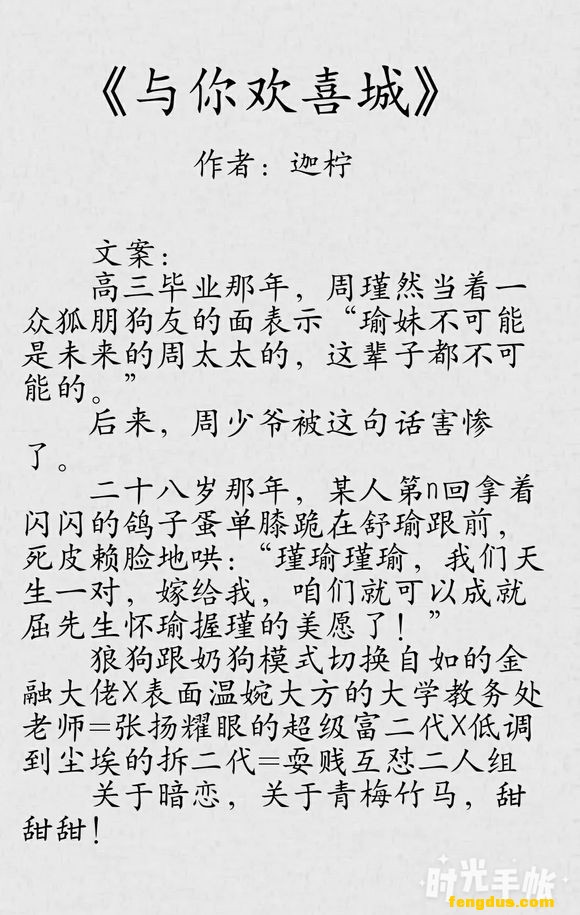 《与你欢喜城》
作者：迦柠
文案：
高三毕业那年，周瑾然当着一
众狐朋狗友的面表示“瑜妹不可能
是未来的周太太的，这辈子都不可
能的。”
后来，周少爷被这句话害惨
了。
二十八岁那年，某人第n回拿着
闪闪的鸽子蛋单膝跪在舒瑜跟前，
死皮赖脸地哄：“瑾瑜瑾瑜，我们天
生一对，嫁给我，咱们就可以成就
屈先生怀瑜握瑾的美愿了！”
狼狗跟奶狗模式切换自如的金
融大佬X表面温婉大方的大学教务处
老师=张扬耀眼的超级富二代X低调
到尘埃的拆二代=耍贱互怼二人组
关于暗恋，关于青梅竹马，甜
甜甜！
时光手帐
fengdus.com